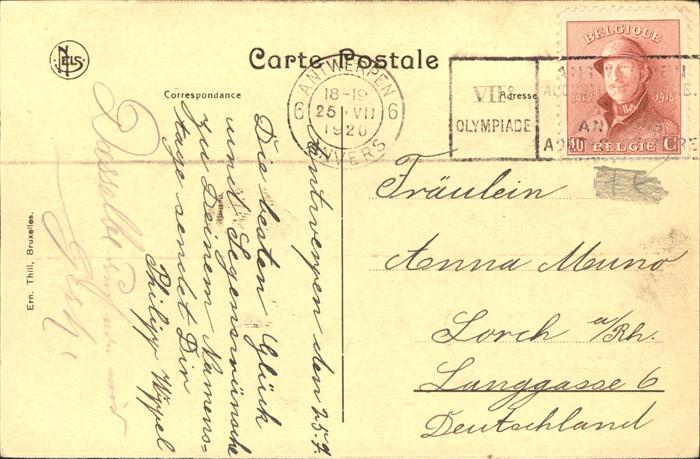 NELS
Carte Postale
Correspondance
Adresse
ANTWERPEN
6 18-19 6
25 VII
1920
ANVERS
VIIe
OLYMPIADE
ANTWERPEN
BELGIQUE
1914 1918
10 BELGIË C
Antwerpen den 25.7.
Die besten Glück
und Segenswünsche
zu Deinem Namens-
tage sendet Dir
Philipp
Dasselbe
Fräulein
Anna Muno
Lorch a/Rh.
Langgasse 6
Deutschland
Ern. Thill, Bruxelles.